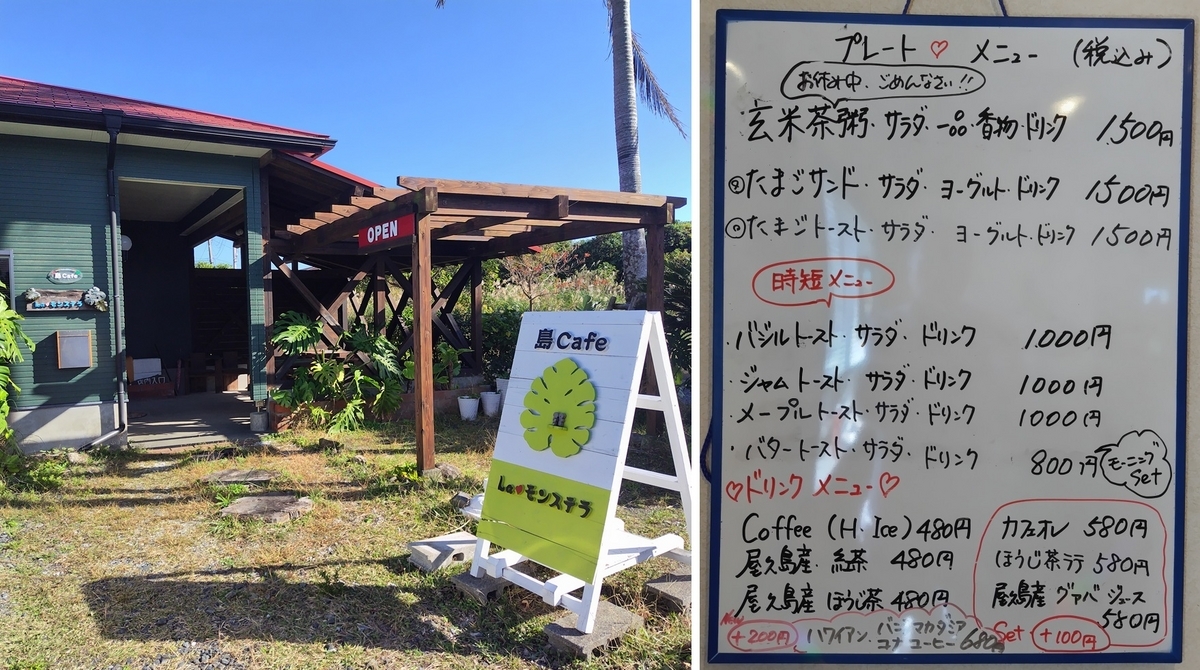 島Cafe
Laモンステラ
OPEN
島Cafe
La♥モンステラ
プレート♡メニュー (税込み)
お休み中、ごめんなさい!!
玄米茶粥・サラダ・一品・香物・ドリンク 1500円
たまごサンド・サラダ・ヨーグルト・ドリンク 1500円
たまごトースト・サラダ・ヨーグルト・ドリンク 1500円
時短メニュー
・バジルトースト・サラダ・ドリンク 1000円
・ジャムトースト・サラダ・ドリンク 1000円
・メープルトースト・サラダ・ドリンク 1000円
・バタートースト・サラダ・ドリンク 800円
モーニングSet
♡ドリンクメニュー♡
Coffee (H・Ice) 480円
屋久島産・紅茶 480円
屋久島産 ほうじ茶 480円
カフェオレ 580円
ほうじ茶ラテ 580円
屋久島産 グァバジュース
580円
New
+200円
ハワイアン・バニラマカダミア
コナコーヒー 680円
Set +100円